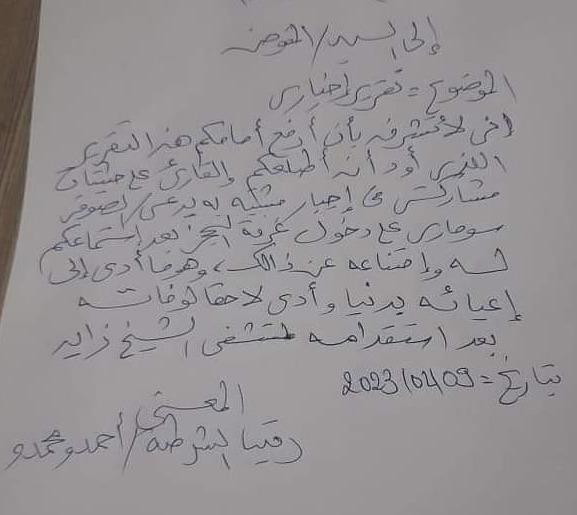 إلى السيد/المفوض
الموضوع = تقرير إخباري
إني لأتشرف بأن أرفع أمامكم هذا التقرير
الذي أود أن أطلعكم والقارئ على حيثيات
مشاركتي في إجبار مشتبه به يدعى/الصوفي
سوماري على دخول غرفة الحجز بعد استماعكم
له وامتناعه عن ذالك، وهو ما أدى إلى
إعيائه بدنيا وأدى لاحقا لوفاته
بعد استقدامه لمستشفى الشيخ زايد
بتاريخ = 2023/04/09
المعني
رقيب الشرطة/أحمدو محمدو